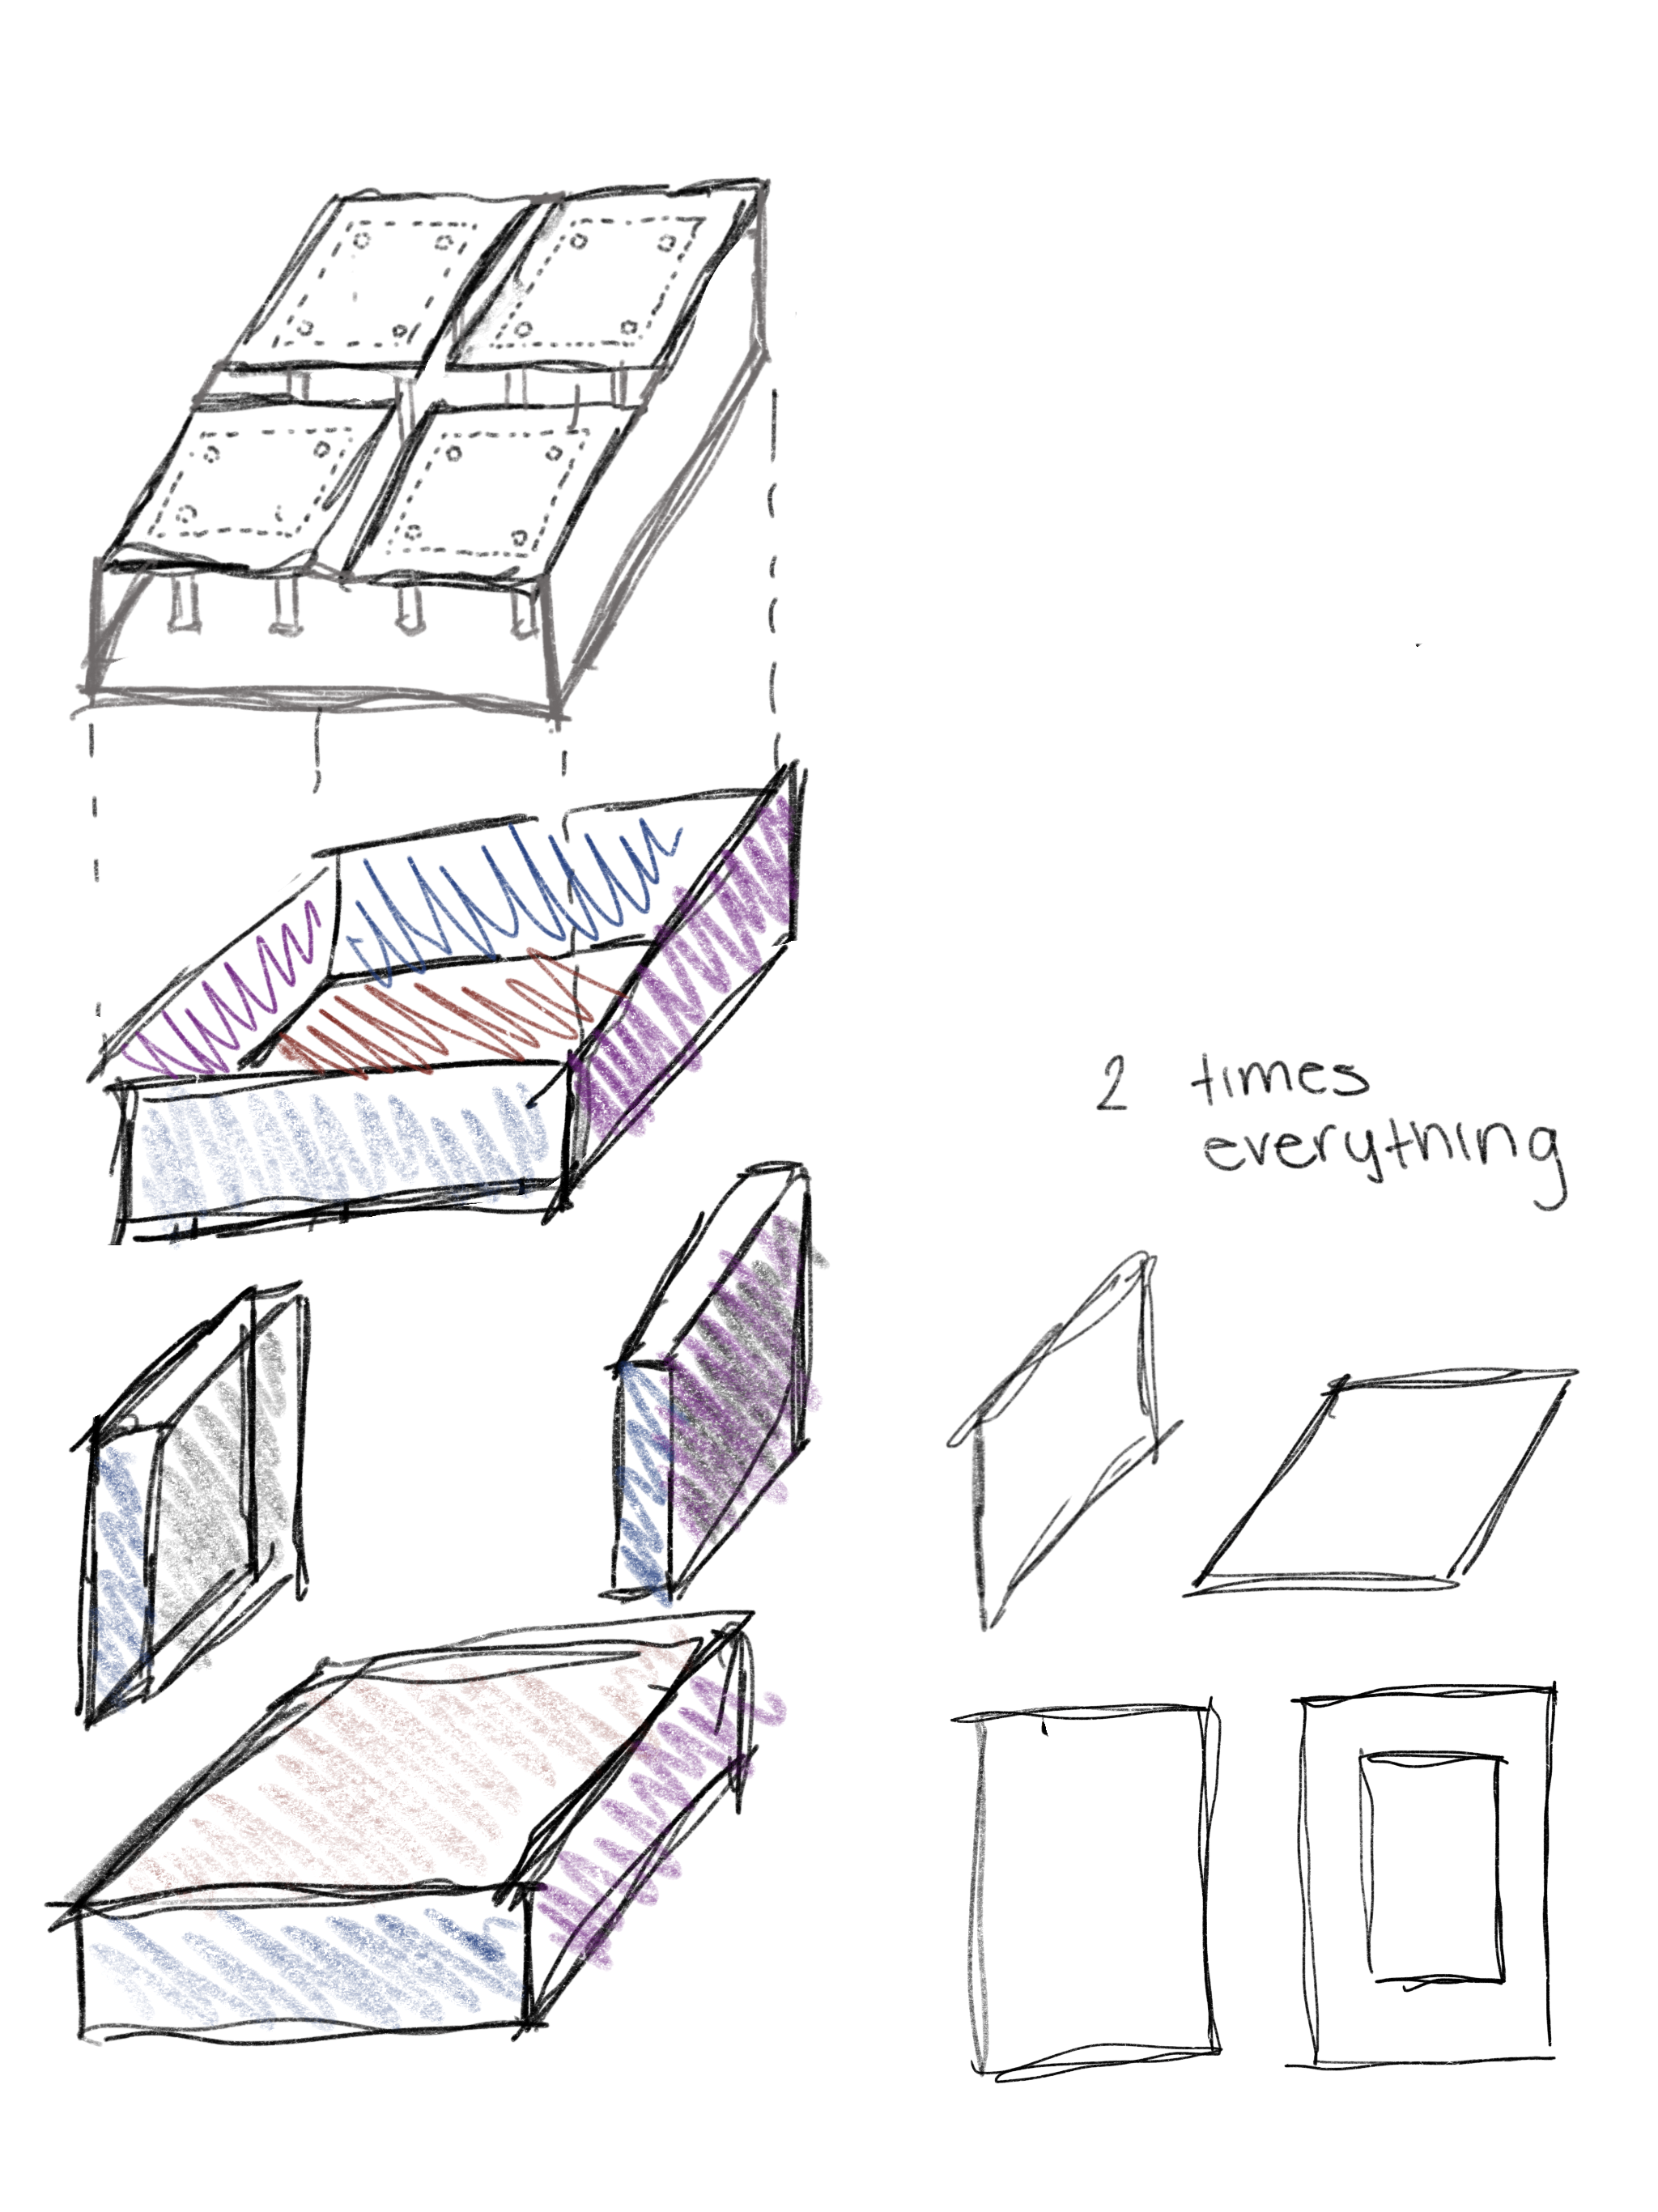 2 times
everything